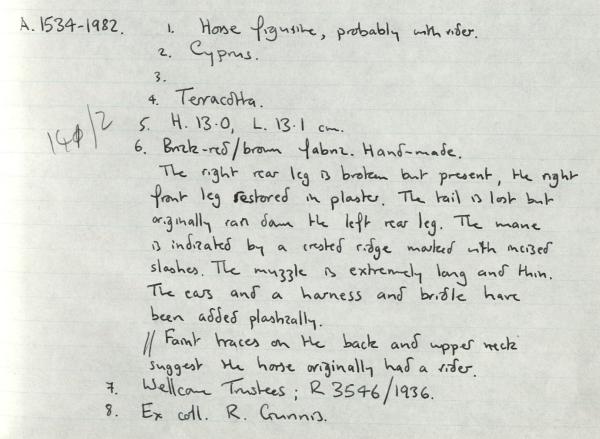 A.1534-1982. 1. Horse figurine, probably with rider.
2. Cyprus.
3.
4. Terracotta.
140/2
5. H. 13.0, L. 13.1 cm.
6. Brick-red/brown fabric. Hand-made.
The right rear leg is broken but present, the right
front leg restored in plaster. The tail is lost but
originally ran down the left rear leg. The mane
is indicated by a crested ridge marked with incised
slashes. The muzzle is extremely long and thin.
The ears and a harness and bridle have
been added plastically.
// Faint traces on the back and upper neck
suggest the horse originally had a rider.
7. Wellcome Trustees; R 3546/1936.
8. Ex coll. R. Gunnis.